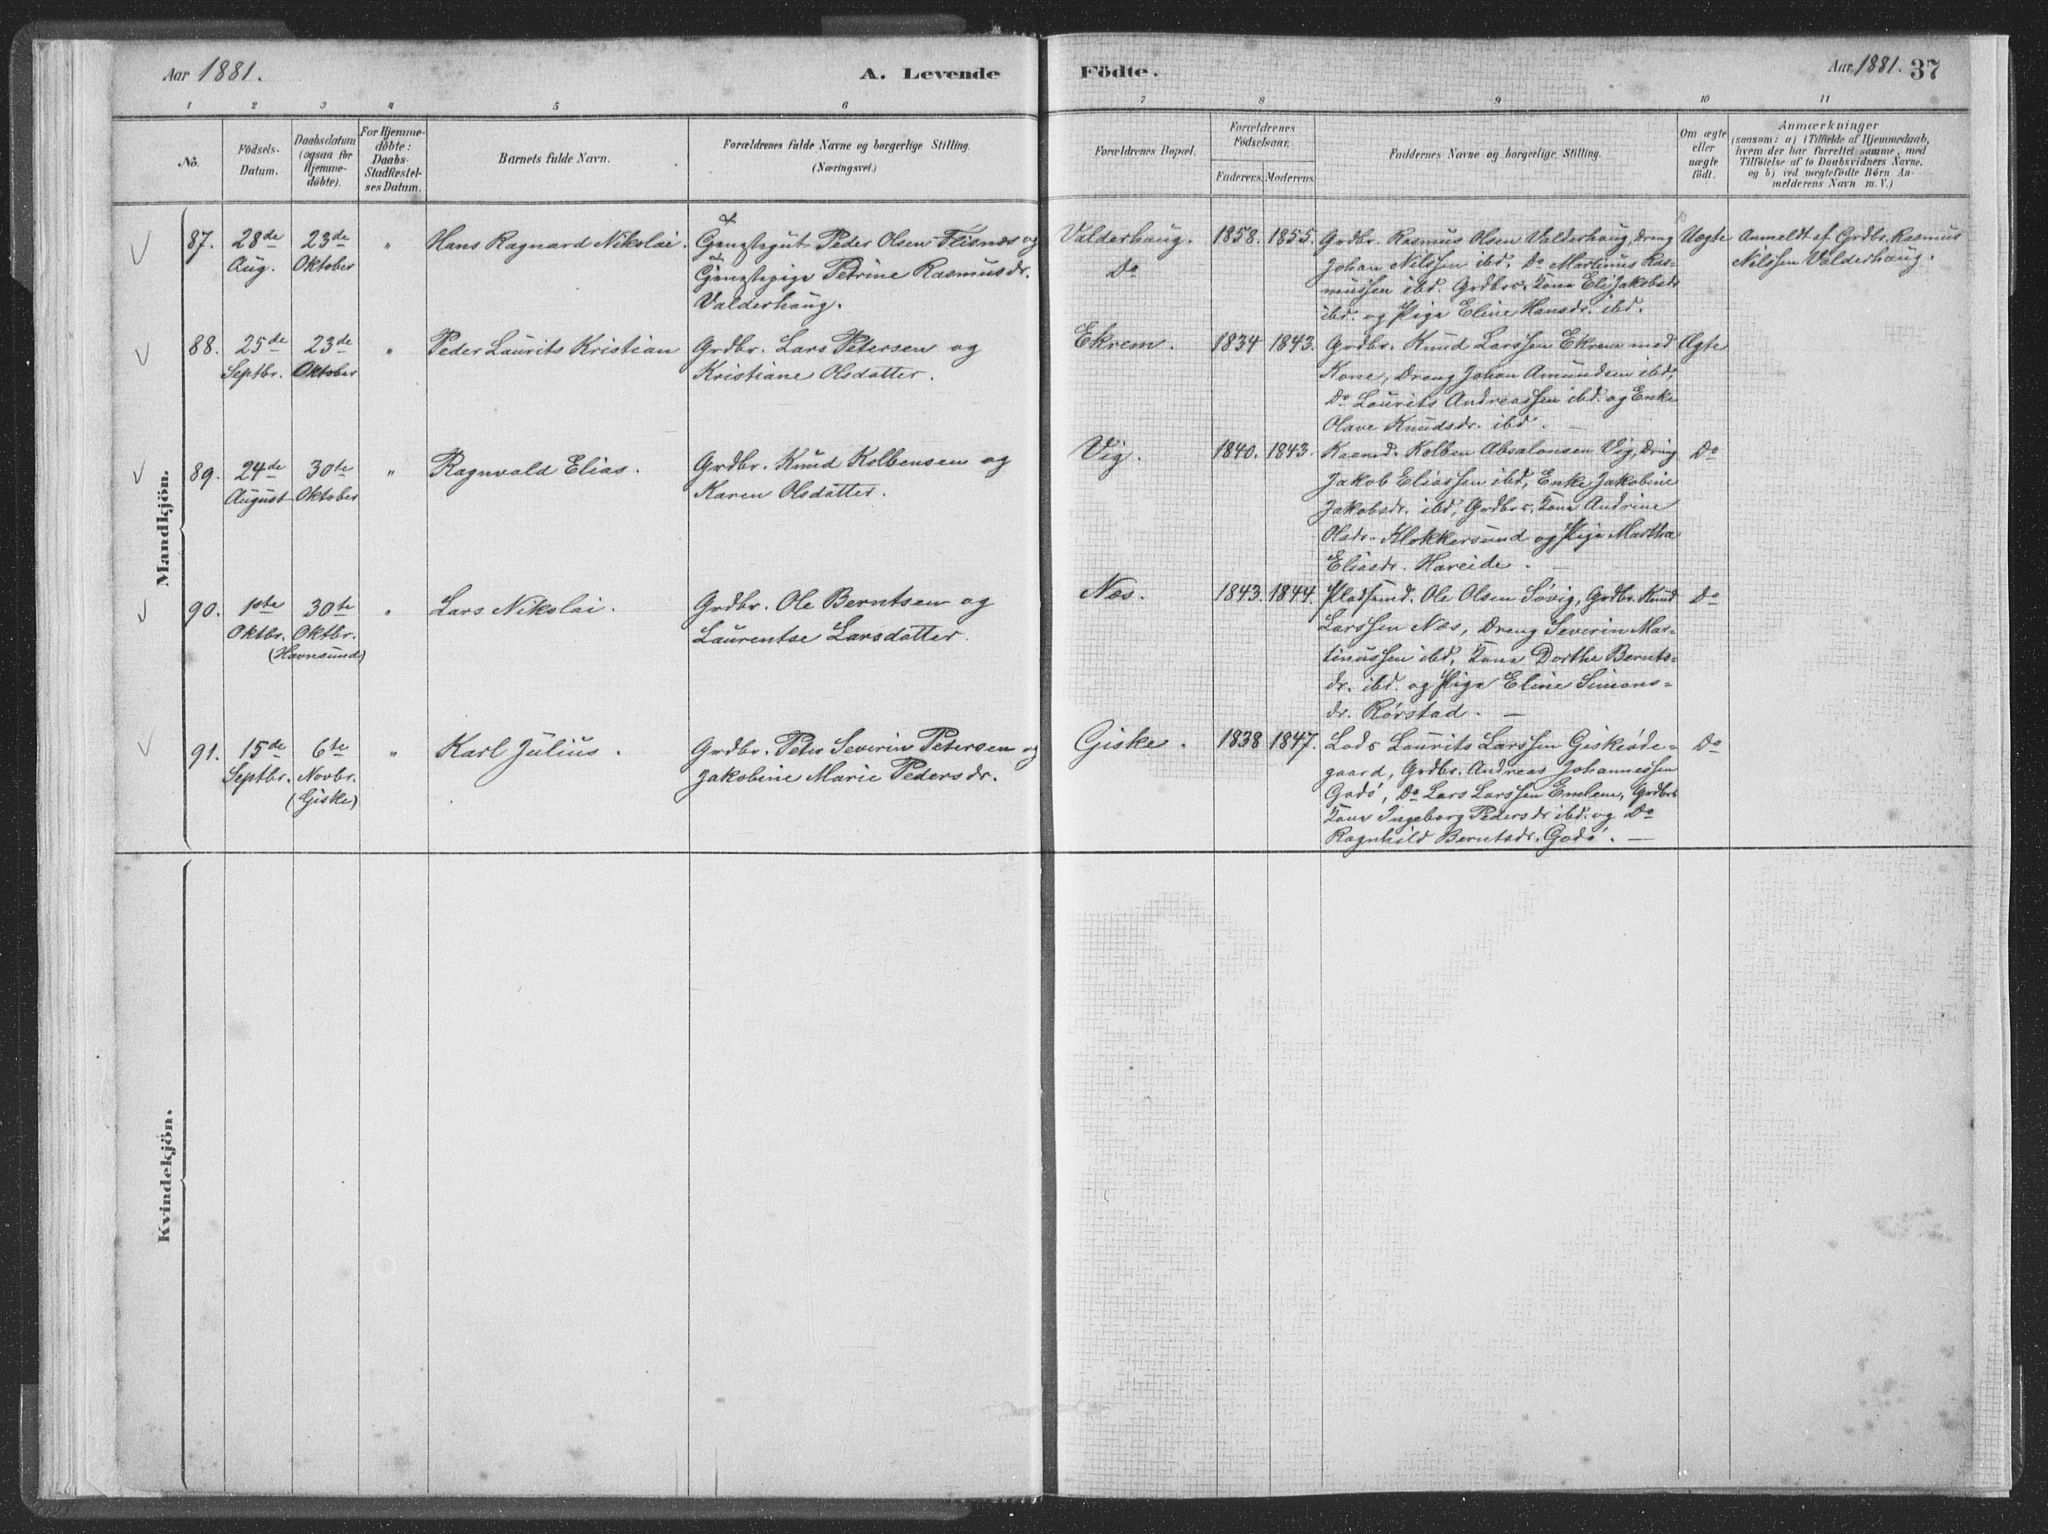 Aar 1881.
A. Levende Födte.
Aar 1881. 37
1 2 3 4 5 6 7 8 9 10 11
No.
Födsels-
Datum.
Daabsdatum
(ogsaa for
Hjemme-
döbte).
For Hjemme-
döbte:
Daabs-
Stadfæstel-
ses Datum.
Barnets fulde Navn.
Forældrenes fulde Navne og borgerlige Stilling.
(Næringsvei.)
Forældrenes Bopæl.
Forældrenes
Födselsaar.
Faderens. Moderens.
Faddernes Navne og borgerlige Stilling.
Om ægte
eller
uægte
födt.
Anmærkninger
(saasom: a) i Tilfælde af Hjemmedaab,
hvem der har forrettet samme, med
Tilföielse af to Daabsvidners Navne,
og b) ved uægtefödte Börn An-
melderens Navn m. V.)
Mandkjön.
87. 28de
Aug.
23de
Oktober
"
Hans Ragnard Nikolai.
Peder Olsen Flisnæs og
Petrine Rasmusdr.
Valderhaug.
Valderhaug.
Do
1858. 1855.
Grdbr. Rasmus Olsen Valderhaug, Dreng
Johan Nilssen ibd. Do Martinus Ras-
mussen ibd. Grdbrs. Kone Eli Jakobsdr
ibd. og Pige Eline Hansdr. ibd.
Uægte
Anmeldt af Grdbr. Rasmus
Nilssen Valderhaug.
88. 25de
Septbr.
23de
Oktober
"
Peder Laurits Kristian
Grdbr. Lars Petersen og
Kristiane Olsdatter.
Ekrem.
1834 1843.
Grdbr. Knud Larssen Ekrem med
Kone, Dreng Johan Amundsen ibd,
Do Laurits Andreassen ibd. og Enke
Olave Knudsdr. ibd. —
Ægte
89. 24de
August
30te
Oktober
"
Ragnvald Elias.
Grdbr. Knud Kolbensen og
Karen Olsdatter.
Vig.
1840. 1843.
Kaarmd. Kolben Absalonsen Vig, Dreng
Jakob Eliassen ibd, Enke Jakobine
Jakobsdr. ibd, Grdbrs. Kone Andrine
Olsdr. Klokkersund og Pige Martha
Eliasdr. Hareide. —
Do
90. 1ste
Oktbr.
30te
Oktbr.
(Havnsund)
"
Lars Nikolai.
Grdbr. Ole Berntsen og
Laurentse Larsdatter.
Næs.
1843. 1844.
Pladsmd. Ole Olsen Søvig, Grdbr. Knud
Larssen Næs, Dreng Severin Mar-
tinussen ibd, Kone Dorthe Bernts-
dr. ibd. og Pige Eline Simons-
dr. Rørstad. —
Do
91. 15de
Septbr.
6te
Novbr.
(Giske)
"
Karl Julius.
Grdbr. Peter Severin Petersen og
Jakobine Marie Pedersdr.
Giske.
1838 1847.
Lods Laurits Larssen Giskeøde-
gaard, Grdbr. Andreas Johannessen
Godø, Do Lars Larssen Emlem, Grdbrs
Kone Ingeborg Pedersdr ibd. og Do
Ragnhild Berntsdr. Godø. —
Do
Kvindekjön.